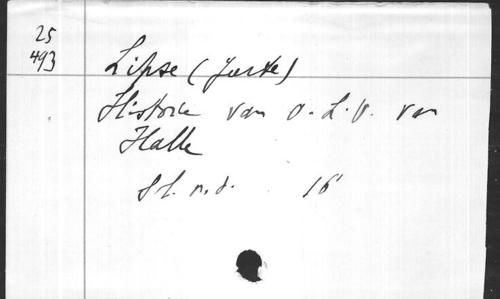 25
493
Lipse (Juste)
Historie van O.L.V. van
Halle
S l. n. d. 16°